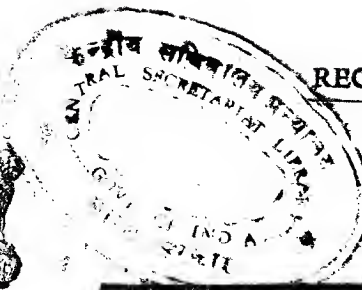 केन्द्रीय सचिवालय ग्रन्थालय
CENTRAL SECRETARIAT LIBRARY
GOVT. OF INDIA
REC